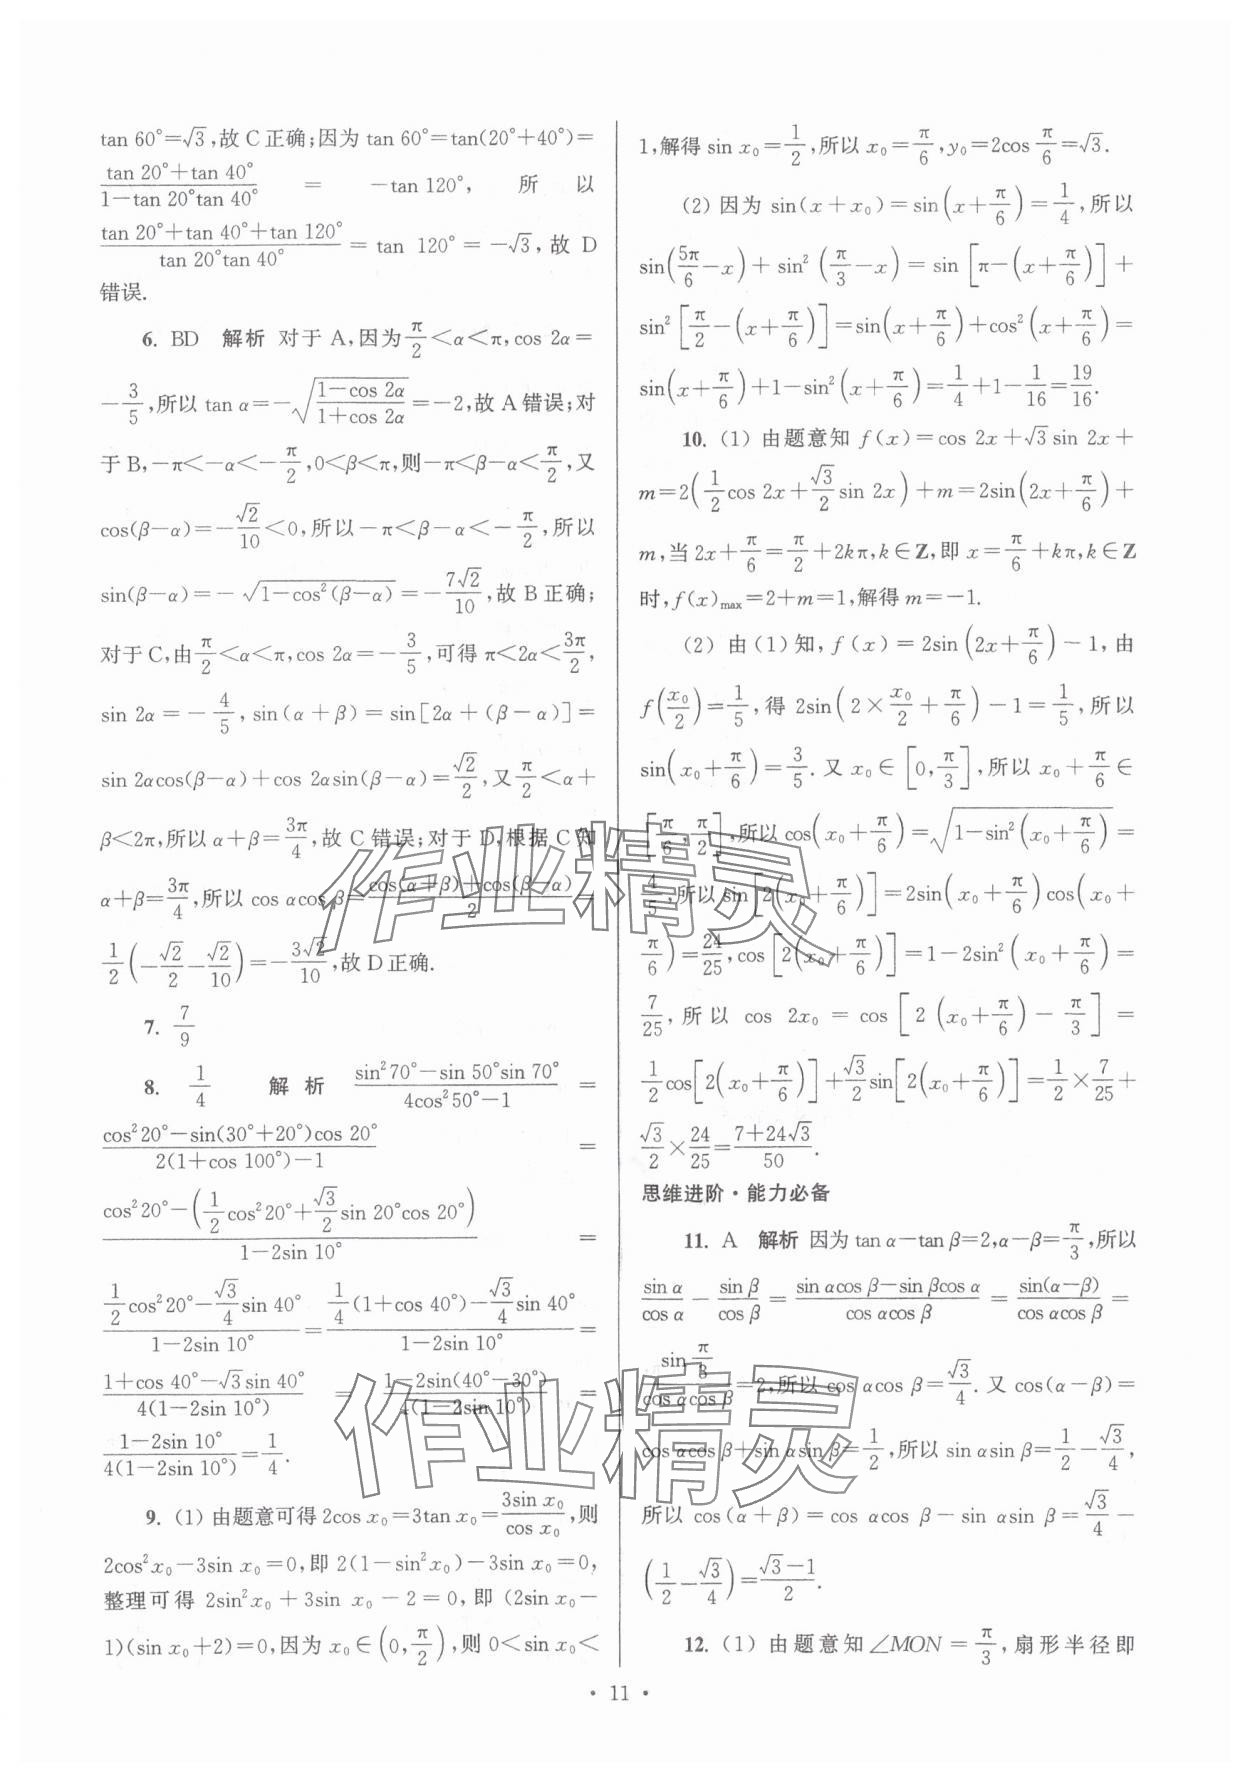 tan 60°=√3,故 C 正确;因为 tan 60°=tan(20°+40°)=
(tan 20°+tan 40°)/(1−tan 20°tan 40°) = −tan 120°, 所以
(tan 20°+tan 40°+tan 120°)/(tan 20°tan 40°) = tan 120° = −√3,故 D
错误.
6. BD 解析 对于 A,因为 π/2<α<π,cos 2α=
−3/5,所以 tan α=−√((1−cos 2α)/(1+cos 2α))=−2,故 A 错误;对
于 B,−π<−α<−π/2,0<β<π,则−π<β−α<π/2,又
cos(β−α)=−√2/10<0,所以−π<β−α<−π/2,所以
sin(β−α)=−√(1−cos²(β−α))=−7√2/10,故 B 正确;
对于 C,由 π/2<α<π,cos 2α=−3/5,可得 π<2α<3π/2,
sin 2α=−4/5,sin(α+β)=sin[2α+(β−α)]=
sin 2αcos(β−α)+cos 2αsin(β−α)=√2/2,又 π/2<α+
β<2π,所以 α+β=3π/4,故 C 错误;对于 D,根据 C 知
α+β=3π/4,所以 cos αcos β=(cos(α+β)+cos(β−α))/2=
1/2(−√2/2−√2/10)=−3√2/10,故 D 正确.
7. 7/9
8. 1/4 解析 (sin²70°−sin 50°sin 70°)/(4cos²50°−1) =
(cos²20°−sin(30°+20°)cos 20°)/(2(1+cos 100°)−1) =
(cos²20°−(1/2cos²20°+√3/2sin 20°cos 20°))/(1−2sin 10°) =
(1/2cos²20°−√3/4sin 40°)/(1−2sin 10°)=(1/4(1+cos 40°)−√3/4sin 40°)/(1−2sin 10°)=
(1+cos 40°−√3sin 40°)/(4(1−2sin 10°)) = (1−2sin(40°−30°))/(4(1−2sin 10°)) =
(1−2sin 10°)/(4(1−2sin 10°))=1/4.
9. (1) 由题意可得 2cos x₀=3tan x₀=3sin x₀/cos x₀,则
2cos²x₀−3sin x₀=0,即 2(1−sin²x₀)−3sin x₀=0,
整理可得 2sin²x₀+3sin x₀−2=0,即 (2sin x₀−
1)(sin x₀+2)=0,因为 x₀∈(0,π/2),则 0<sin x₀<
1,解得 sin x₀=1/2,所以 x₀=π/6,y₀=2cos π/6=√3.
(2) 因为 sin(x+x₀)=sin(x+π/6)=1/4,所以
sin(5π/6−x)+sin²(π/3−x)=sin[π−(x+π/6)]+
sin²[π/2−(x+π/6)]=sin(x+π/6)+cos²(x+π/6)=
sin(x+π/6)+1−sin²(x+π/6)=1/4+1−1/16=19/16.
10. (1) 由题意知 f(x)=cos 2x+√3sin 2x+
m=2(1/2cos 2x+√3/2sin 2x)+m=2sin(2x+π/6)+
m,当 2x+π/6=π/2+2kπ,k∈Z,即 x=π/6+kπ,k∈Z
时,f(x)max=2+m=1,解得 m=−1.
(2) 由(1)知,f(x)=2sin(2x+π/6)−1,由
f(x₀/2)=1/5,得 2sin(2×x₀/2+π/6)−1=1/5,所以
sin(x₀+π/6)=3/5. 又 x₀∈[0,π/3],所以 x₀+π/6∈
[π/6,π/2],所以 cos(x₀+π/6)=√(1−sin²(x₀+π/6))=
4/5,所以 sin[2(x₀+π/6)]=2sin(x₀+π/6)cos(x₀+
π/6)=24/25,cos[2(x₀+π/6)]=1−2sin²(x₀+π/6)=
7/25,所以 cos 2x₀=cos[2(x₀+π/6)−π/3]=
1/2cos[2(x₀+π/6)]+√3/2sin[2(x₀+π/6)]=1/2×7/25+
√3/2×24/25=(7+24√3)/50.
思维进阶·能力必备
11. A 解析 因为 tan α−tan β=2,α−β=π/3,所以
sin α/cos α − sin β/cos β = (sin αcos β−sin βcos α)/(cos αcos β) = sin(α−β)/(cos αcos β) =
sin π/3/(cos αcos β)=2,所以 cos αcos β=√3/4. 又 cos(α−β)=
cos αcos β+sin αsin β=1/2,所以 sin αsin β=1/2−√3/4,
所以 cos(α+β)=cos αcos β−sin αsin β=√3/4−
(1/2−√3/4)=(√3−1)/2.
12. (1) 由题意知∠MON=π/3,扇形半径即
·11·
作业精灵
作业精灵